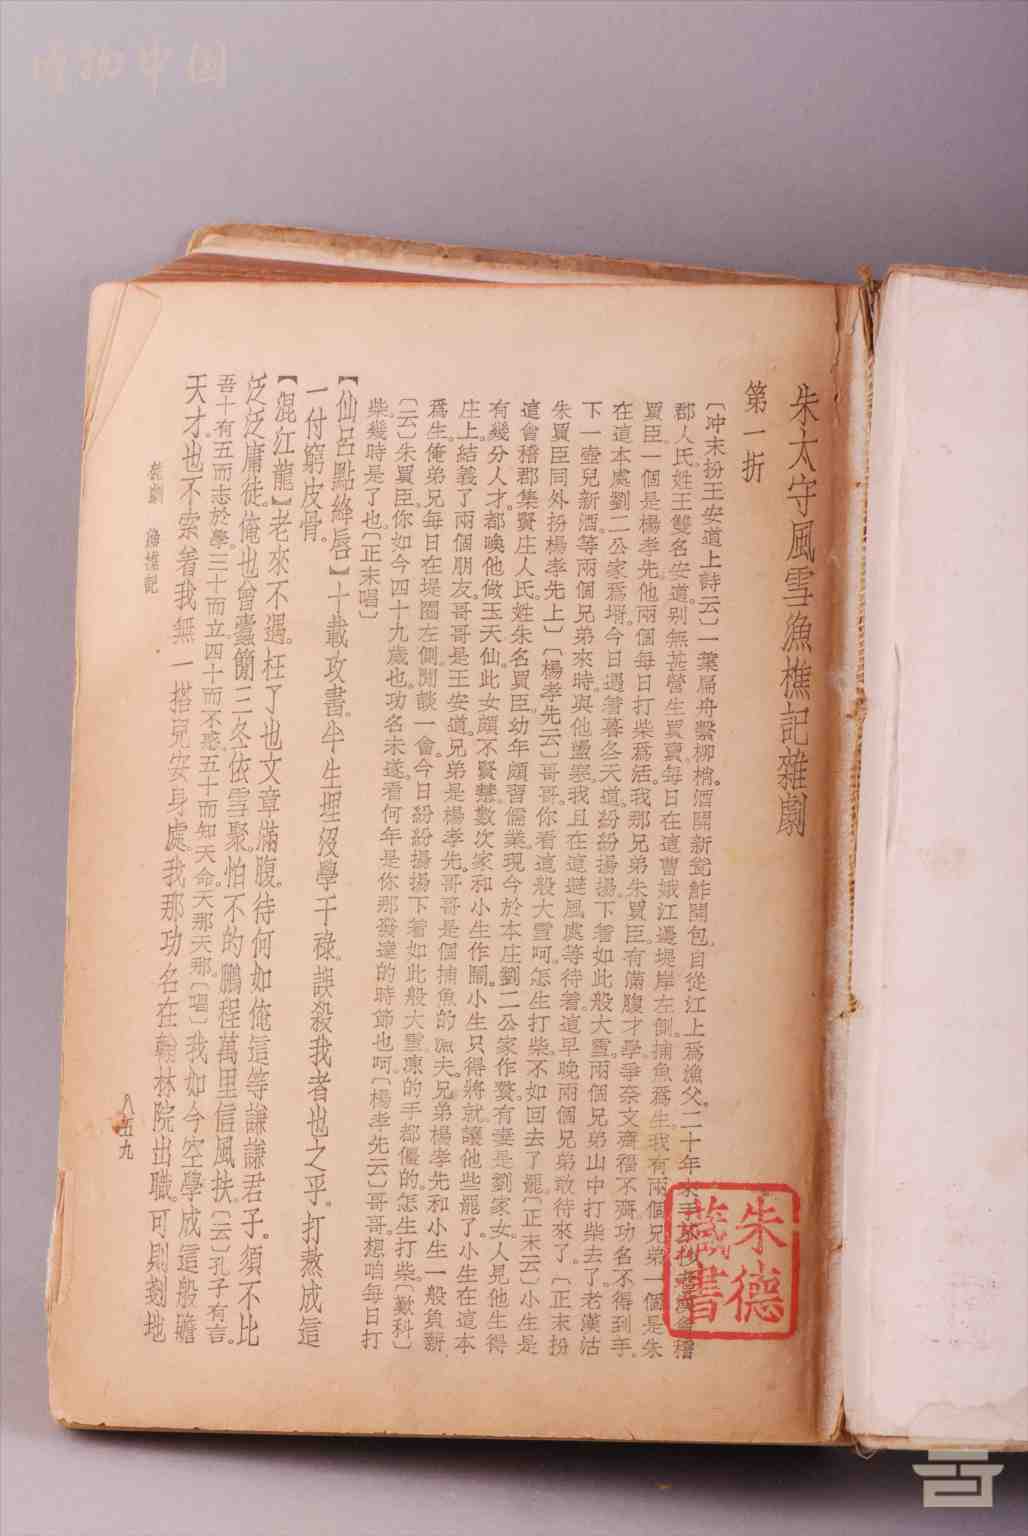 博物中国
朱太守風雪漁樵記雜劇
第一折
〔冲末扮王安道上詩云〕一葉扁舟繫柳梢。酒開新甕鮓開包。自從江上爲漁父。二十年來手
郡人氏。姓王雙名安道。别無甚營生買賣。每日在這曹娥江邊堤岸左側。捕魚爲生。我有兩個兄弟。一個是朱
買臣。一個是楊孝先。他兩個每日打柴爲活。我那兄弟朱買臣。有滿腹才學。爭奈文齊福不齊。功名不得到手。
在這本處劉二公家爲壻。今日遇着暮冬天道。紛紛揚揚。下着如此般大雪。兩個兄弟山中打柴去了。老漢沽
下一壺兒新酒。等兩個兄弟來時。與他盪寒。我且在這避風處等待着。這早晚兩個兄弟敢待來了。〔正末扮
朱買臣同外扮楊孝先上〕〔楊孝先云〕哥哥。你看這般大雪呵。怎生打柴。不如回去了罷。〔正末云〕小生是
這會稽郡集賢庄人氏。姓朱名買臣。幼年頗習儒業。現今於本庄劉二公家作贅。有妻是劉家女。人見他生得
有幾分人才。都喚他做玉天仙。此女頗不賢慧。數次家和小生作鬧。小生只得將就讓他些罷了。小生在這本
庄上。結義了兩個朋友。哥哥是王安道。兄弟是楊孝先。哥哥是個捕魚的漁夫。兄弟楊孝先和小生一般負薪
爲生。俺弟兄每日在堤圈左側。閒談一會。今日紛紛揚揚。下着如此般大雪。凍的手都僵的。怎生打柴。〔歎科〕
〔云〕朱買臣。你如今四十九歲也。功名未遂。看何年是你那發達的時節也呵。〔楊孝先云〕哥哥。想咱每日打
柴。幾時是了也。〔正末唱〕
【仙呂點絳唇】十載攻書。半生埋没。學干祿。誤殺我者也之乎。打熬成這
一付窮皮骨。
【混江龍】老來不遇。枉了也文章滿腹。待何如。俺這等謙謙君子。須不比
泛泛庸徒。俺也曾蠹簡三冬依雪聚。怕不的鵬程萬里信風扶。〔云〕孔子有言。
吾十有五而志於學。三十而立。四十而不惑。五十而知天命。天那天那。〔唱〕我如今空學成這般贍
天才。也不索着我無一搭兒安身處。我那功名在翰林院出職。可則剗地
雜劇 漁樵記
八五九
朱德
藏書